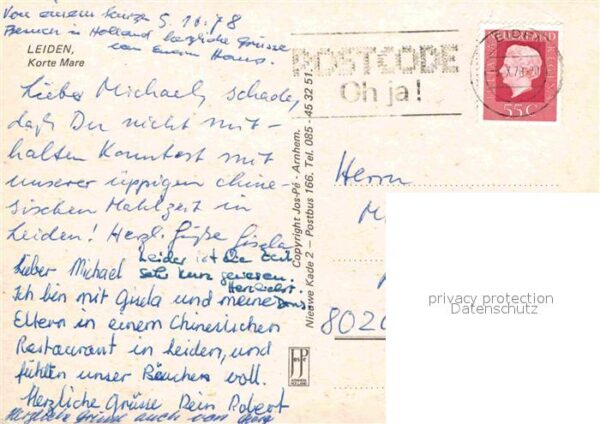 Von einem kurzen 5.10.78
Besuch in Holland herzliche Grüsse
von Eurem Hans.
LEIDEN,
Korte Mare
Lieber Michael, schade,
daß Du nicht mit-
halten konntest mit
unserer üppigen chine-
sischen Mahlzeit in
Leiden! Herzl. Grüße Gisela
Leider ist die Zeit
sehr kurz gewesen.
Herzlichst.
Lieber Michael
Ich bin mit Gisela und meine
Eltern in einem Chinesischen
Restaurant in Leiden, und
fühlten unser Bäuchen voll.
Herzliche Grüsse Dein Robert
Herzliche Grüsse auch von
Copyright Jos-Pé - Arnhem.
Nieuwe Kade 2 – Postbus 166. Tel. 085 - 45 32 51.
POSTCODE
Oh ja!
55 C
Herrn
M
802
privacy protection
Datenschutz